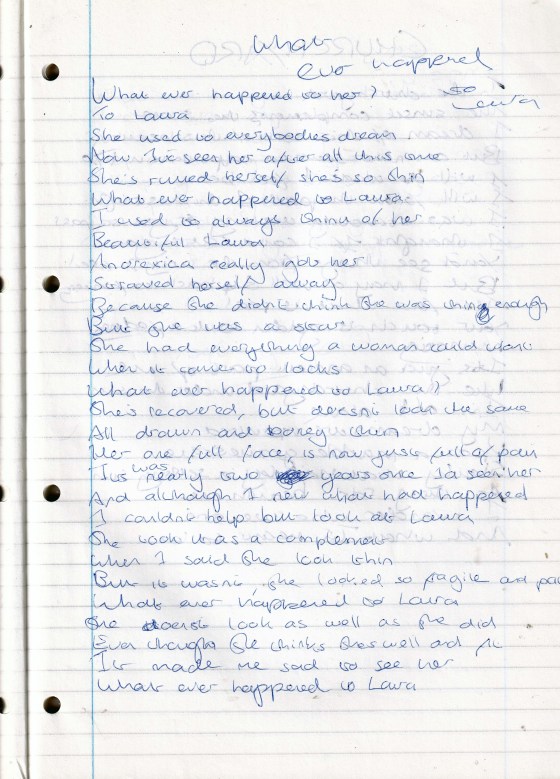 What
ever happened
to
Laura
What ever happened to her?
To Laura
She used to everybodies dream
Now I've seen her after all this time
She's ruined herself she's so thin
What ever happened to Laura
I used to always think of her
Beautiful Laura
Anorexica really into her
Starved herself away
Because she didn't think she was thing enough
But she was a star
She had everything a woman could want
When it came to looks
What ever happened to Laura?
She's recovered, but doesn't look the same
All drawn and boney thin
Her one full face, is now just full of pain
It was nearly two years since I'd seen her
And although I new what had happened
I couldn't help but look at Laura
She took it as a complement
When I said she look thin
But it wasn't, she looked so fragile and
What ever happened to Laura
She doesnt look as well as she did
Even though she thinks shes well and fit
It made me sad to see her
What ever happened to Laura